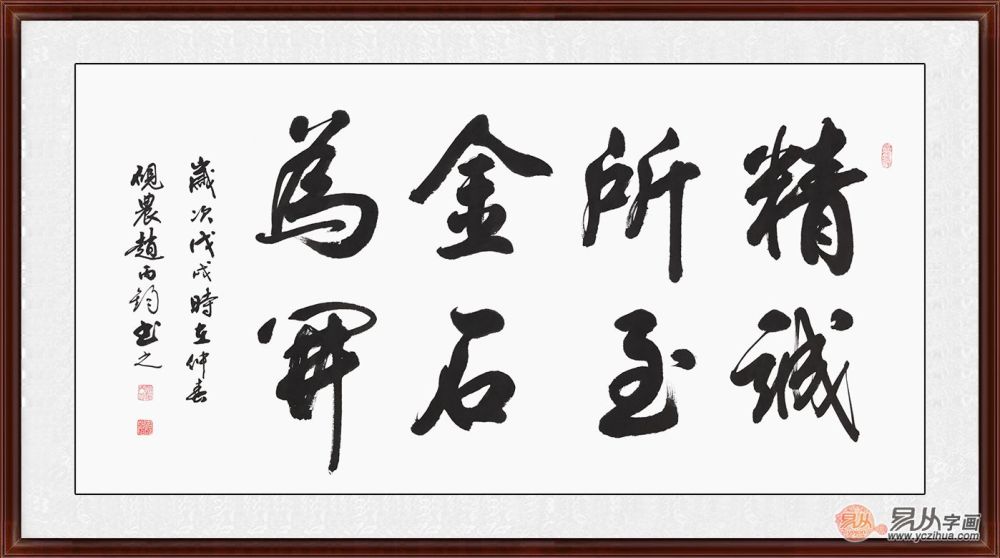 精誠
所至
金石
為開
歲次戊戌時在仲春
硯農趙雨鈞書之
易从字画
www.yczihua.com